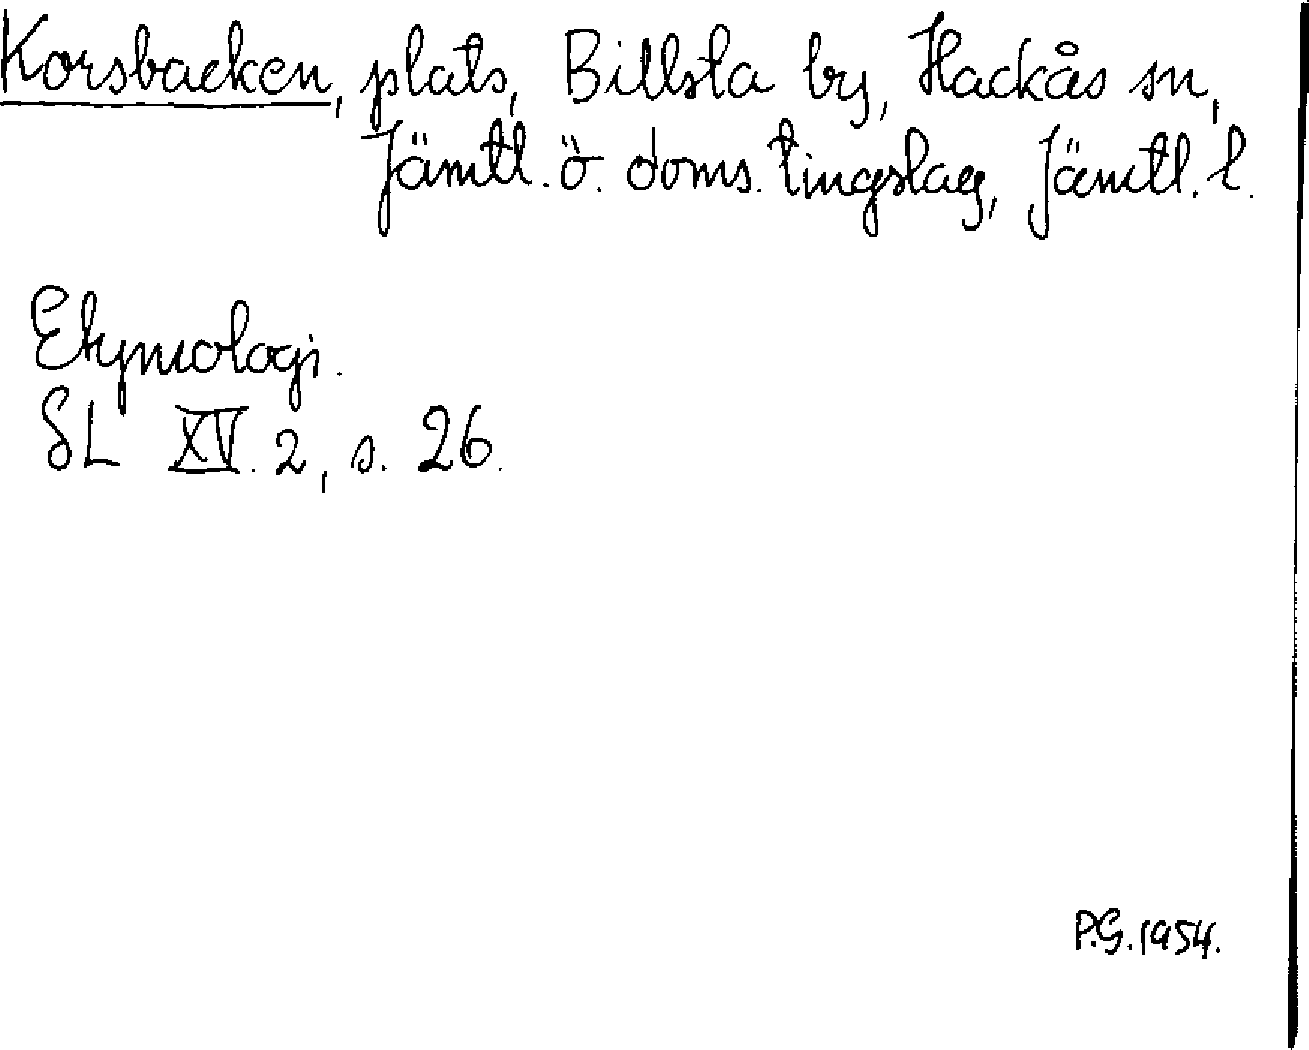 Korsbacken, plats, Billsta by, Hackås sn,
Jämtl. ö. doms. tingslag, Jämtl. l.
Etymologi.
SL XV. 2, s. 26.
P.G. 1954.